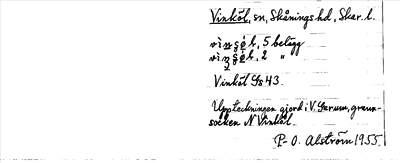 Vinköl, sn, Skånings hd, Skar. l.
5 belägg
2 "
Vinköl Gs 43.
Uppteckningen gjord i V. Gerum, grann-
socken N Vinköl.
P-O. Alström 1955.